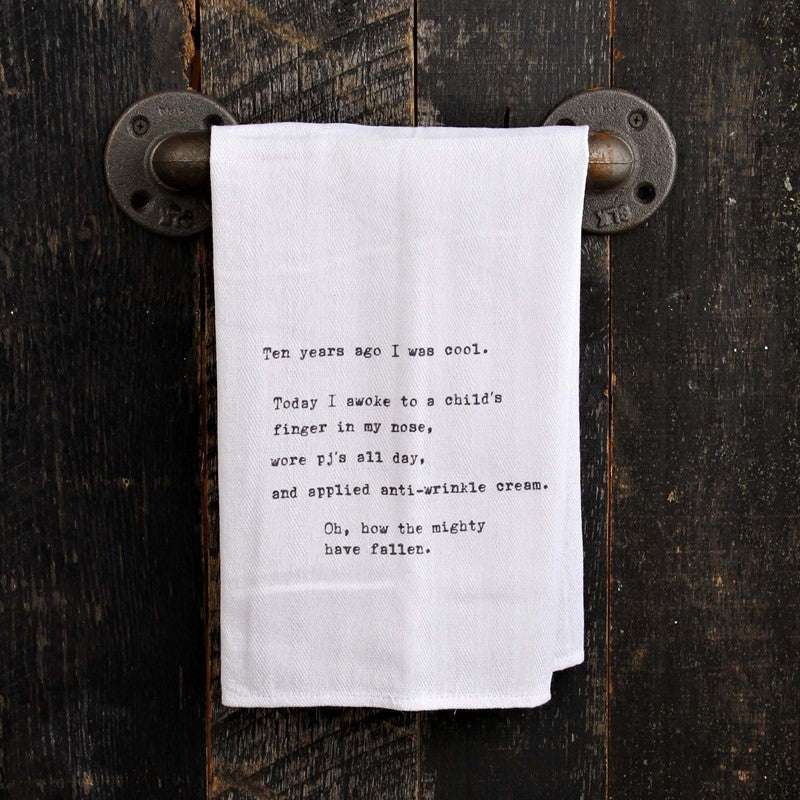 Ten years ago I was cool.
Today I awoke to a child's
finger in my nose,
wore pj's all day,
and applied anti-wrinkle cream.
Oh, how the mighty
have fallen.